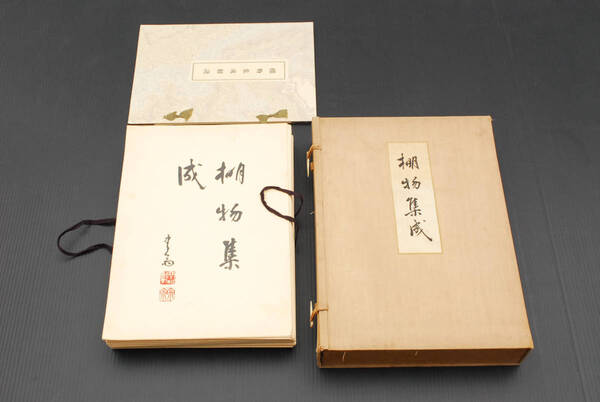 棚物集成解説
棚物集
成
棚物集成